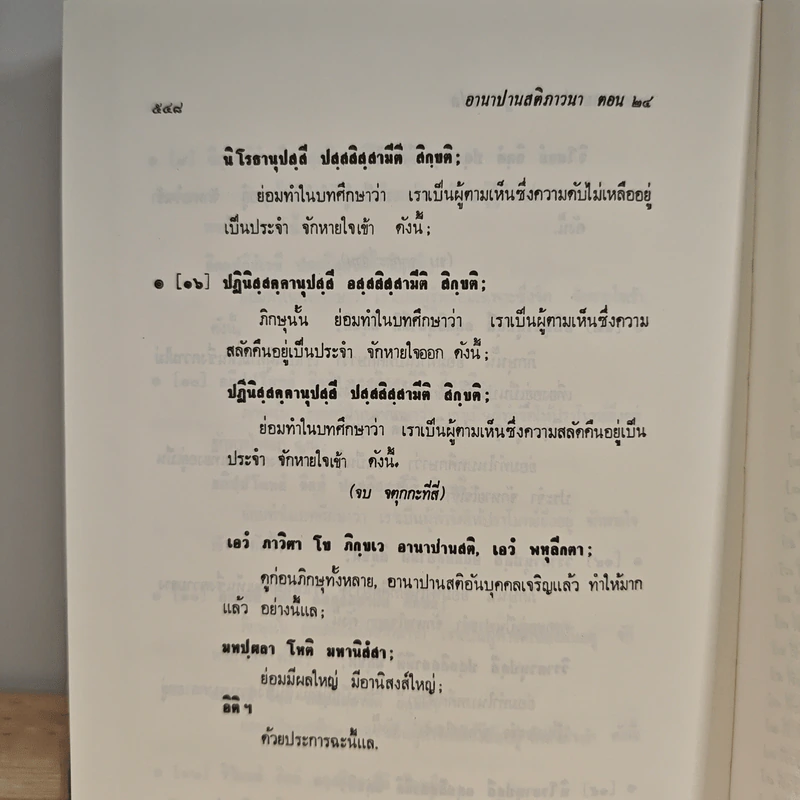 ๕๔๘
อานาปานสติภาวนา ตอน ๒๔
นิโรธานุปสฺสี ปสฺสสิสฺสามีติ สิกฺขติ;
ย่อมทำในบทศึกษาว่า เราเป็นผู้ตามเห็นซึ่งความดับไม่เหลืออยู่
เป็นประจำ จักหายใจเข้า ดังนี้;
๑ [๑๖] ปฏินิสฺสคฺคานุปสฺสี อสฺสสิสฺสามีติ สิกฺขติ;
ภิกษุนั้น ย่อมทำในบทศึกษาว่า เราเป็นผู้ตามเห็นซึ่งความ
สลัดคืนอยู่เป็นประจำ จักหายใจออก ดังนี้;
ปฏินิสฺสคฺคานุปสฺสี ปสฺสสิสฺสามีติ สิกฺขติ;
ย่อมทำในบทศึกษาว่า เราเป็นผู้ตามเห็นซึ่งความสลัดคืนอยู่เป็น
ประจำ จักหายใจเข้า ดังนี้.
(จบ จตุกกะที่สี่)
เอวํ ภาวิตา โข ภิกฺขเว อานาปานสติ, เอวํ พหุลีกตา;
ดูก่อนภิกษุทั้งหลาย, อานาปานสติอันบุคคลเจริญแล้ว ทำให้มาก
แล้ว อย่างนี้แล;
มหปฺผลา โหติ มหานิสํสา;
ย่อมมีผลใหญ่ มีอานิสงส์ใหญ่;
อิติ ฯ
ด้วยประการฉะนี้แล.